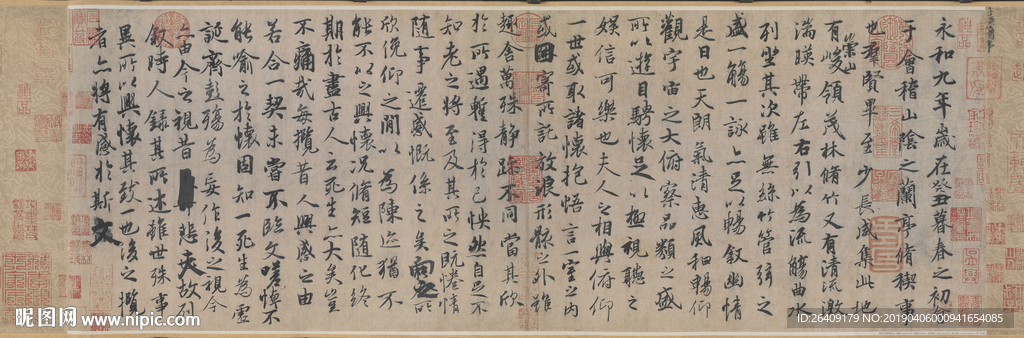 永和九年歲在癸丑暮春之初會
于會稽山陰之蘭亭脩稧事
也羣賢畢至少長咸集此地
有崇山峻領茂林脩竹又有清流激
湍暎帶左右引以為流觴曲水
列坐其次雖無絲竹管弦之
盛一觴一詠亦足以暢敘幽情
是日也天朗氣清惠風和暢仰
觀宇宙之大俯察品類之盛
所以遊目騁懷足以極視聽之
娛信可樂也夫人之相與俯仰
一世或取諸懷抱悟言一室之內
或因寄所託放浪形骸之外雖
趣舍萬殊靜躁不同當其欣
於所遇暫得於己怏然自足不
知老之將至及其所之既惓情
隨事遷感慨係之矣向之所
欣俛仰之閒以為陳迹猶不
能不以之興懷況脩短隨化終
期於盡古人云死生亦大矣豈
不痛哉每攬昔人興感之由
若合一契未嘗不臨文嗟悼不
能喻之於懷固知一死生為虛
誕齊彭殤為妄作後之視今
亦由今之視昔悲夫故列
敘時人錄其所述雖世殊事
異所以興懷其致一也後之攬
者亦將有感於斯文
昵图网 www.nipic.com
ID:26409179 NO:20190406000941654085